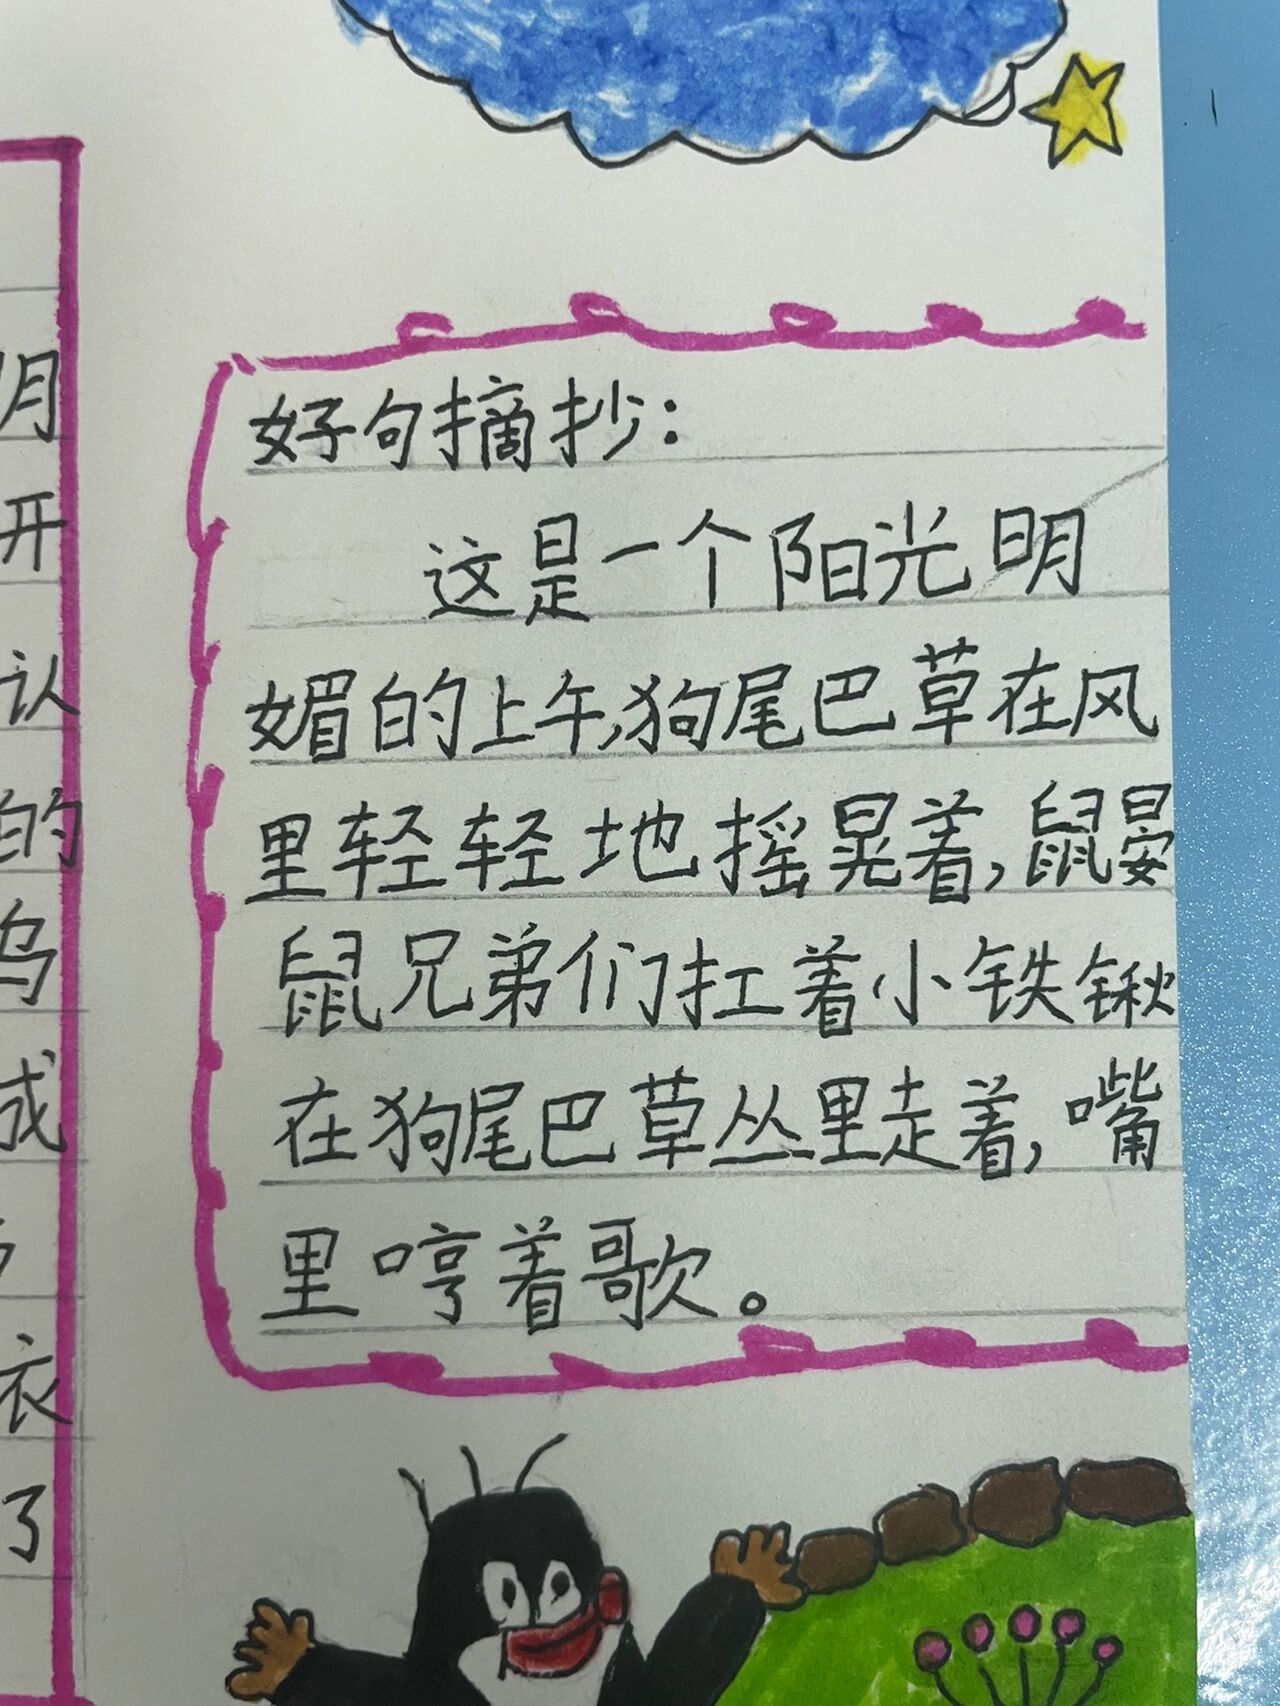 月
开
认
的
乌
成
衣
了
好句摘抄：
这是一个阳光明
媚的上午，狗尾巴草在风
里轻轻地摇晃着，鼠鼹
鼠兄弟们扛着小铁锹
在狗尾巴草丛里走着，嘴
里哼着歌。